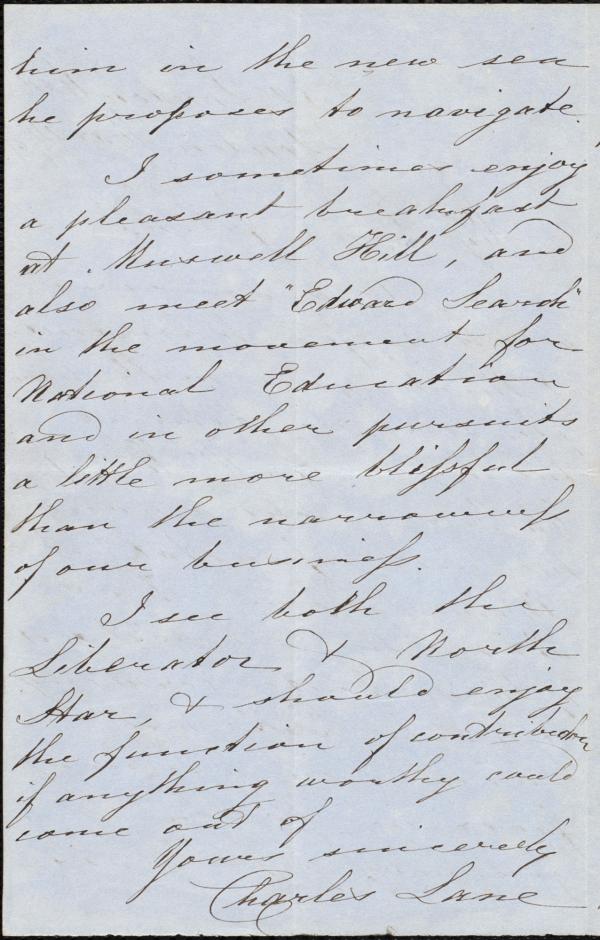 him in the new sea
he proposes to navigate.
I sometimes enjoy
a pleasant breakfast
at Muswell Hill, and
also meet "Edward Search"
in the movement for
National Education
and in other pursuits
a little more blissful
than the narrowness
of our business.
I see both the
Liberator & North
Star, & should enjoy
the function of contributor
if anything worthy could
come out of
Yours sincerely
Charles Lane